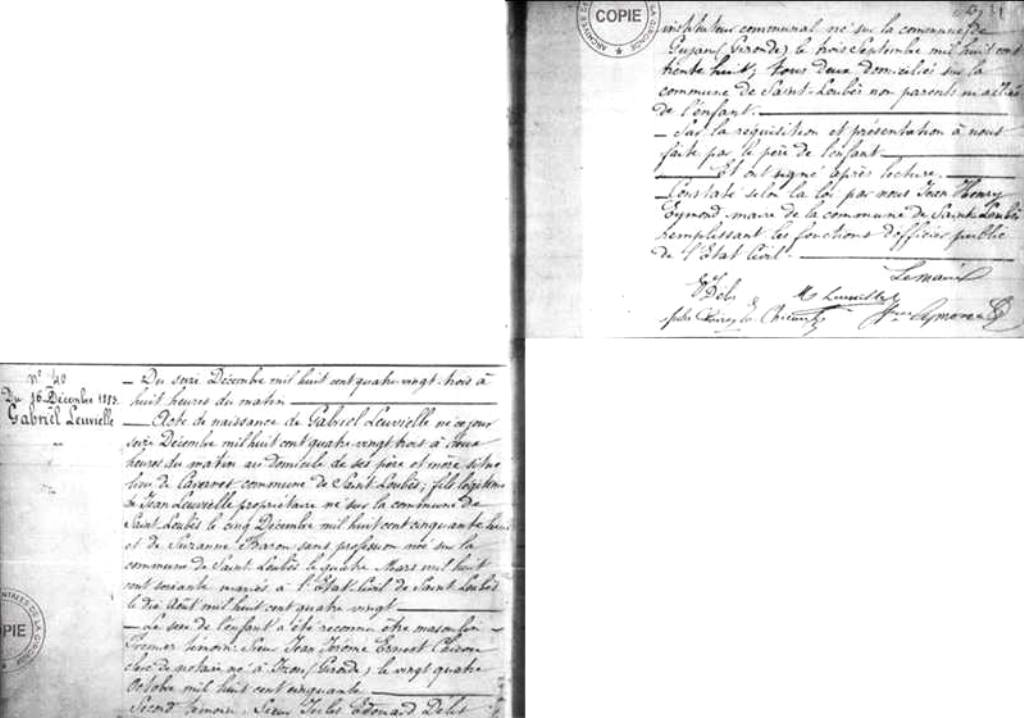 n° 40
Du 16 Décembre 1883.
Gabriel Leuvielle
— Du seize Décembre mil huit cent quatre vingt trois à
huit heures du matin
— Acte de naissance de Gabriel Leuvielle né ce jour
seize Décembre mil huit cent quatre vingt trois à deux
heures du matin au domicile de ses père et mère situé
lieu de Caverne commune de Saint Loubès; fils légitime
de Jean Leuvielle propriétaire né sur la commune de
Saint Loubès le cinq Décembre mil huit cent cinquante
et de Suzanne Baron sans profession née sur la
commune de Saint Loubès le quatre Mars mil huit
cent soixante mariés à l'Etat Civil de Saint Loubès
le dix Août mil huit cent quatre vingt
— Le sexe de l'enfant a été reconnu être masculin —
Premier témoin: Sieur Jean Jérôme Ernest
clerc de notaire né à Izon (Gironde) le vingt quatre
Octobre mil huit cent cinquante
Second témoin: Sieur Jules Edouard Delis
COPIE
instituteur communal né sur la commune de
Gujan (Gironde) le trois Septembre mil huit cent
trente huit; tous deux domiciliés sur la
commune de Saint-Loubès non parents ni alliés
de l'enfant.
— Sur la réquisition et présentation à nous
faite par le père de l'enfant
Et ont signé après lecture.
Constaté selon la loi par nous Jean Henry
Eymond maire de la commune de Saint Loubès
remplissant les fonctions d'officier public
de l'Etat Civil.
Le maire
Leuvielle
Eymond
COPIE
ARCHIVES DE LA GIRONDE